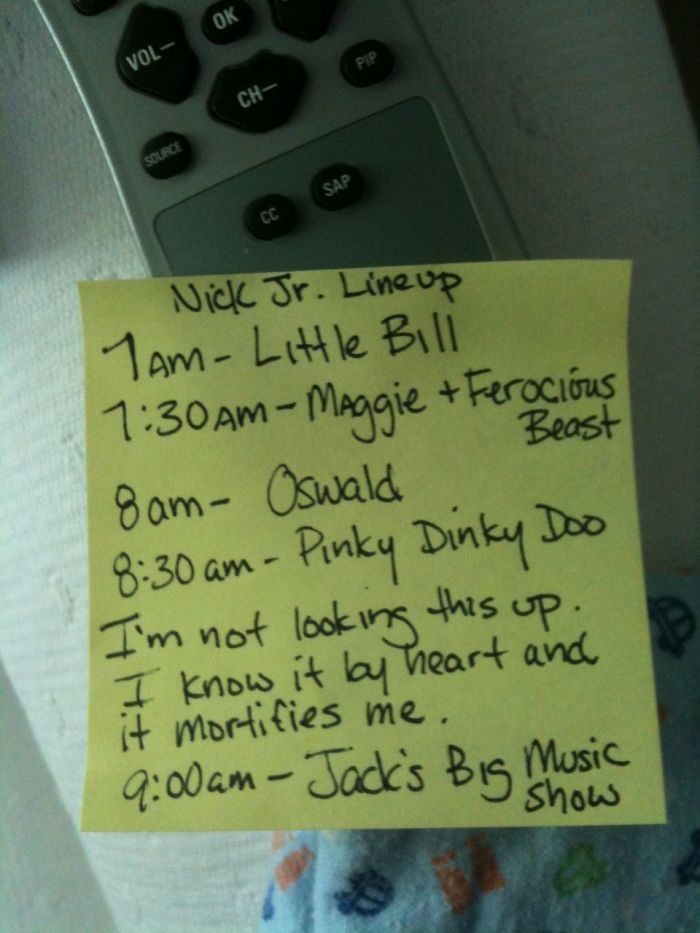 OK
VOL—
PIP
CH—
SOURCE
SAP
CC
Nick Jr. Lineup
7am - Little Bill
7:30am - Maggie + Ferocious
Beast
8am - Oswald
8:30am - Pinky Dinky Doo
I'm not looking this up.
I know it by heart and
it mortifies me.
9:00am - Jack's Big Music
Show